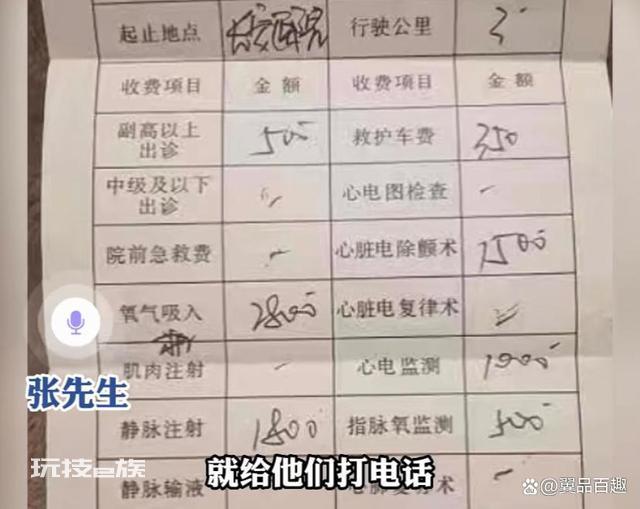 起止地点 行驶公里 3
收费项目 金额 收费项目 金额
副高以上出诊 500 救护车费 350
中级及以下出诊 心电图检查
院前急救费 心脏电除颤术 1500
氧气吸入 2800 心脏电复律术
肌肉注射 心电监测 1000
张先生
静脉注射 1800 指脉氧监测 500
玩技e族
就给他们打电话
静脉输液
@翼品百趣